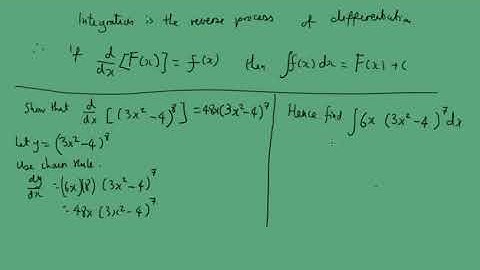 Integration is the reverse process of differentiation
∴ If d/dx [F(x)] = f(x) then ∫f(x) dx = F(x) + c
Show that d/dx [(3x²-4)⁸] = 48x(3x²-4)⁷
Let y = (3x²-4)⁸
Use chain rule.
dy/dx = (6x)(8) (3x²-4)⁷
= 48x (3x²-4)⁷
Hence find ∫6x (3x²-4)⁷dx